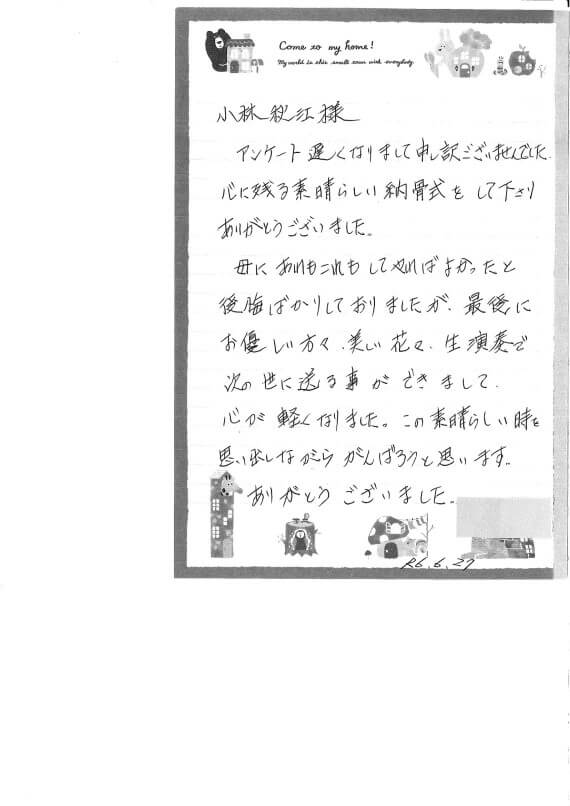 Come to my home!
My world is this small town with everybody.
小林秋江様
アンケート遅くなりまして申し訳ございませんでした。
心に残る素晴らしい納骨式をして下さり
ありがとうございました。
母にあれもこれもしてやればよかったと
後悔ばかりしておりましたが、最後に
お優しい方々、美しい花々、生演奏で
次の世に送る事ができまして、
心が軽くなりました。この素晴らしい時を
思い出しながらがんばろうと思います。
ありがとうございました。
R6.6.27